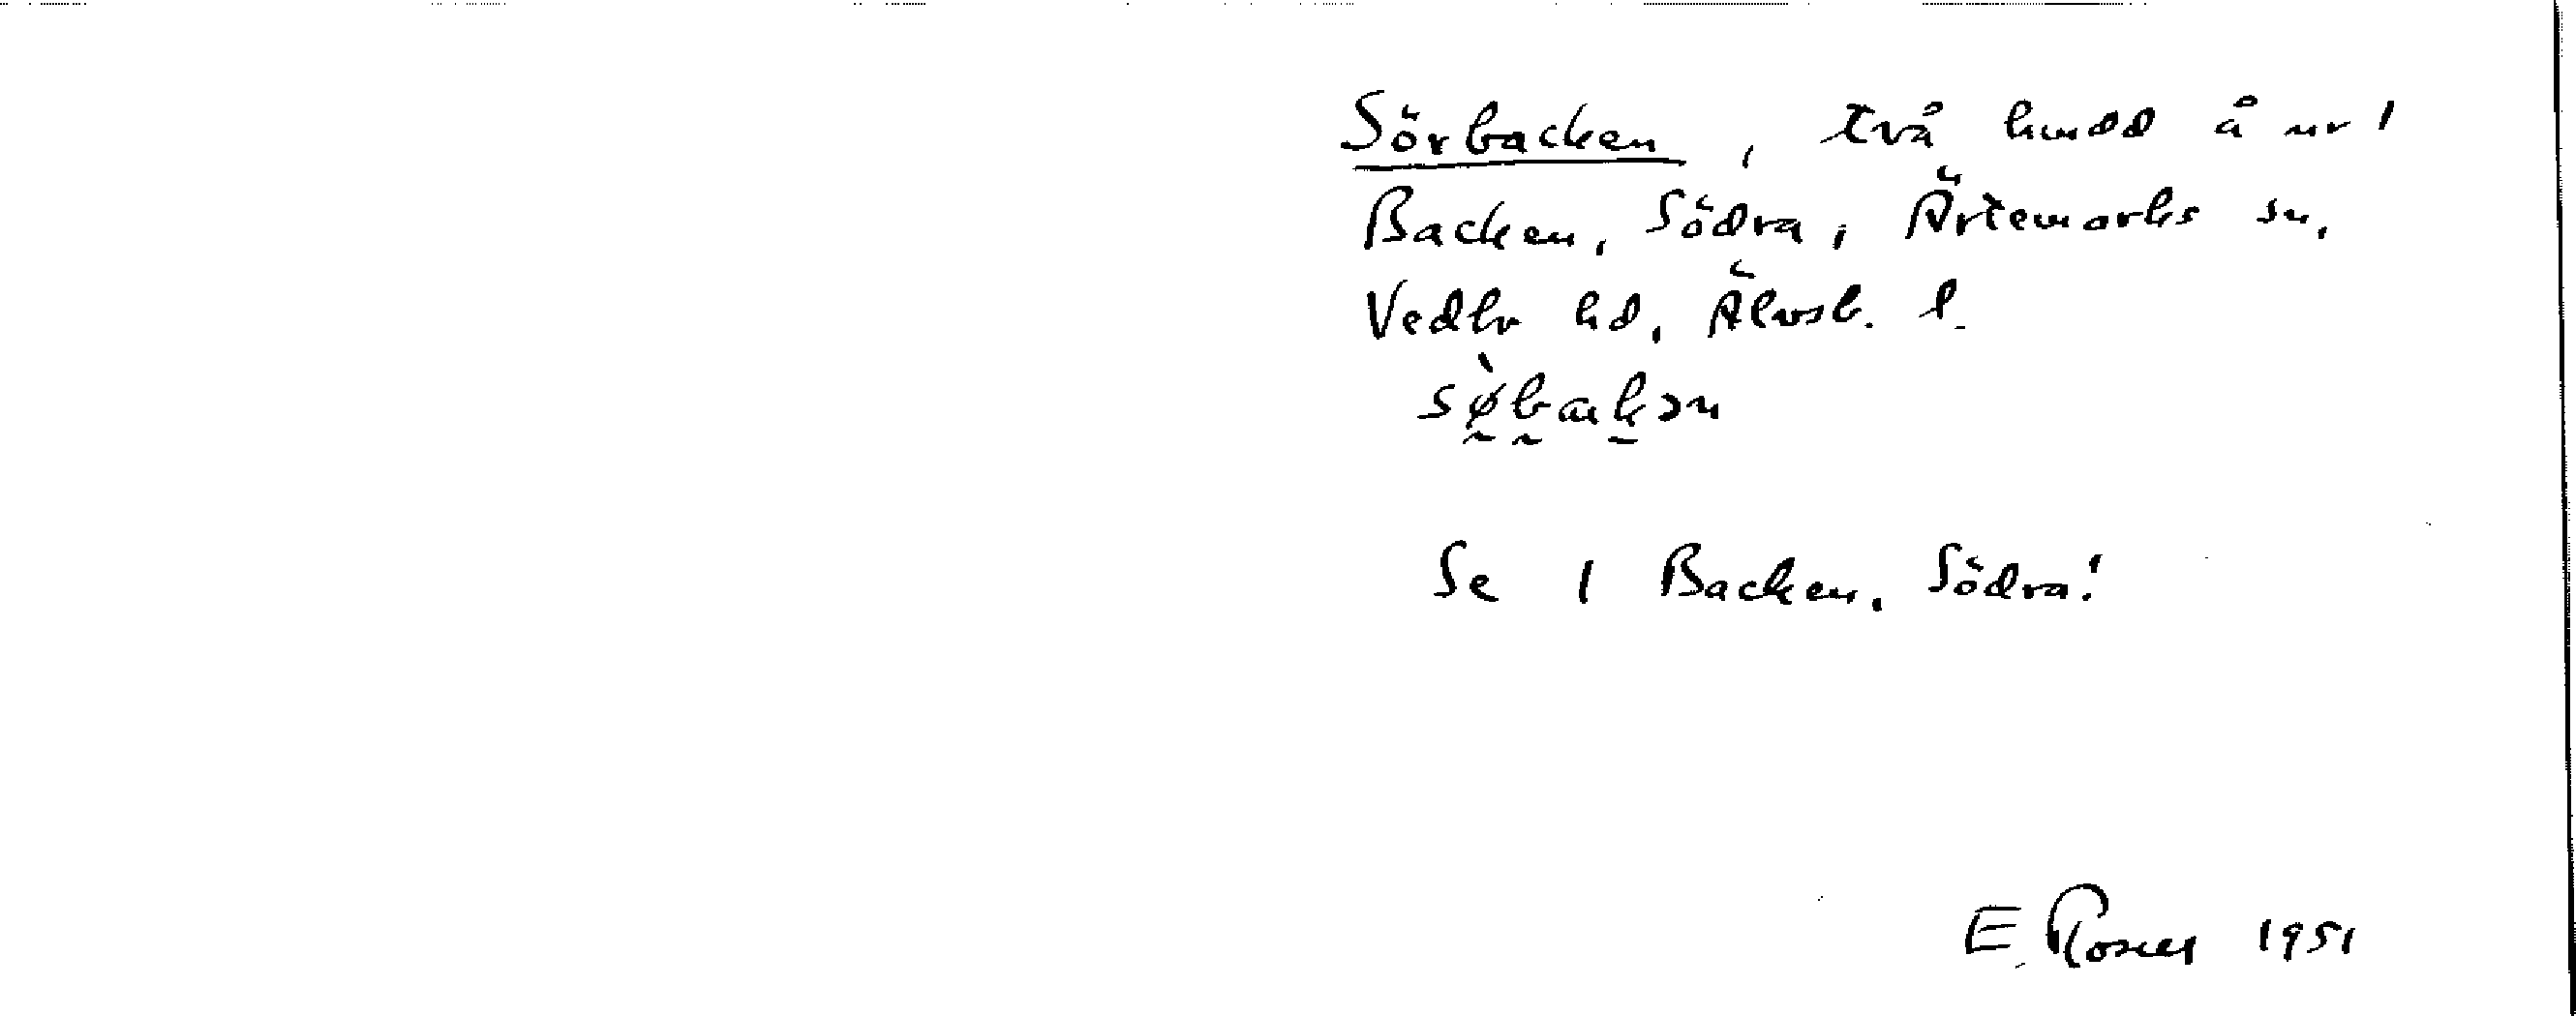 Sörbacken, två hmdd å nr 1
Backen, Södra, Ärtemarks sn,
Vedbo hd, Älvsb. l.
sø̀bakən
Se 1 Backen, Södra!
E. Rosell 1951